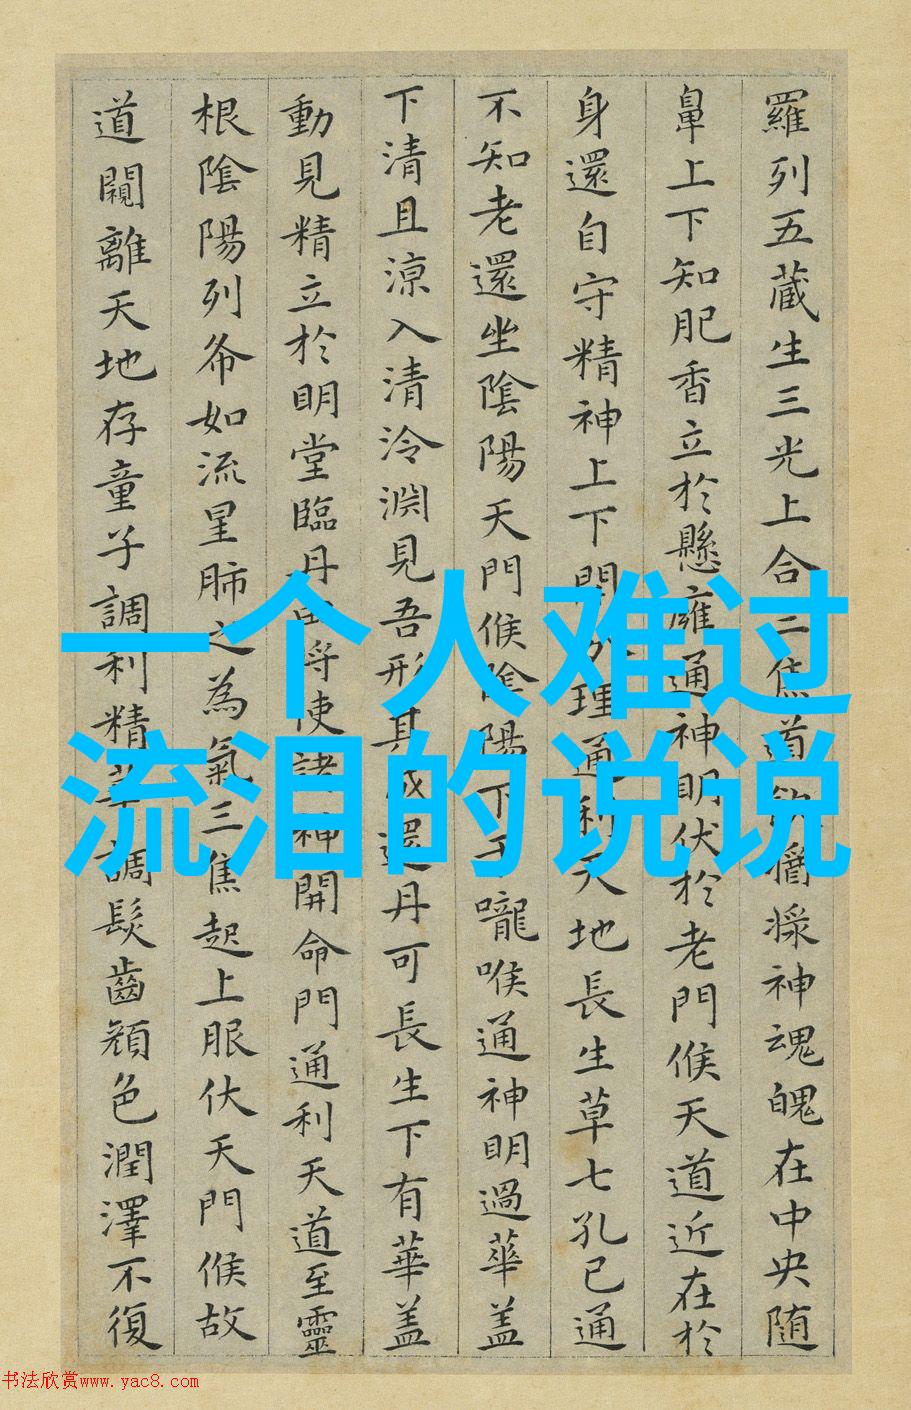 羅列五藏生三光上合三焦道飲漿神魂魄在中央随
鼻上下知肥香立於懸癰通神明伏於老門候天道近在於
身還自守精神上下開分理通利天地長生草七孔已通
不知老還坐陰陽天門候陰陽下于嚨喉通神明過華盖
下清且涼入清泠渊見吾形其成還丹可長生下有華盖
動見精立於明堂臨丹田将使諸神開命門通利天道至靈
根陰陽列布如流星肺之為氣三焦起上服伏天門候故
道闚離天地存童子調利精華調髮齒顔色潤澤不復
一个人难过
流泪的说说
书法欣赏www.yac8.com